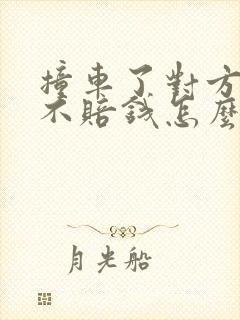 撞車了對方
不賠錢怎麼
月光船